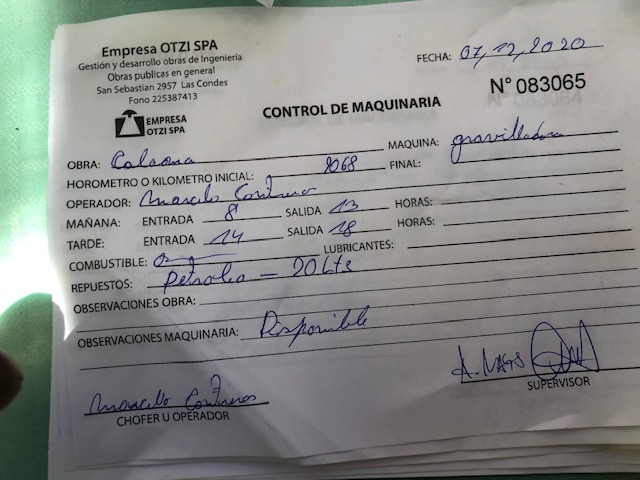 Empresa OTZI SPA
Gestión y desarrollo obras de Ingeniería
Obras publicas en general
San Sebastian 2957 Las Condes
Fono 225387413
FECHA: 07,12,2020
EMPRESA
OTZI SPA
CONTROL DE MAQUINARIA
N° 083065
OBRA: MAQUINA: gravilladora
HOROMETRO O KILOMETRO INICIAL: 8068 FINAL:
OPERADOR: Marcelo
MAÑANA: ENTRADA 8 SALIDA 13 HORAS:
TARDE: ENTRADA 14 SALIDA 18 HORAS:
COMBUSTIBLE: LUBRICANTES:
REPUESTOS: petroleo - 20 Lts
OBSERVACIONES OBRA:
OBSERVACIONES MAQUINARIA: Disponible
Marcelo
CHOFER U OPERADOR
SUPERVISOR